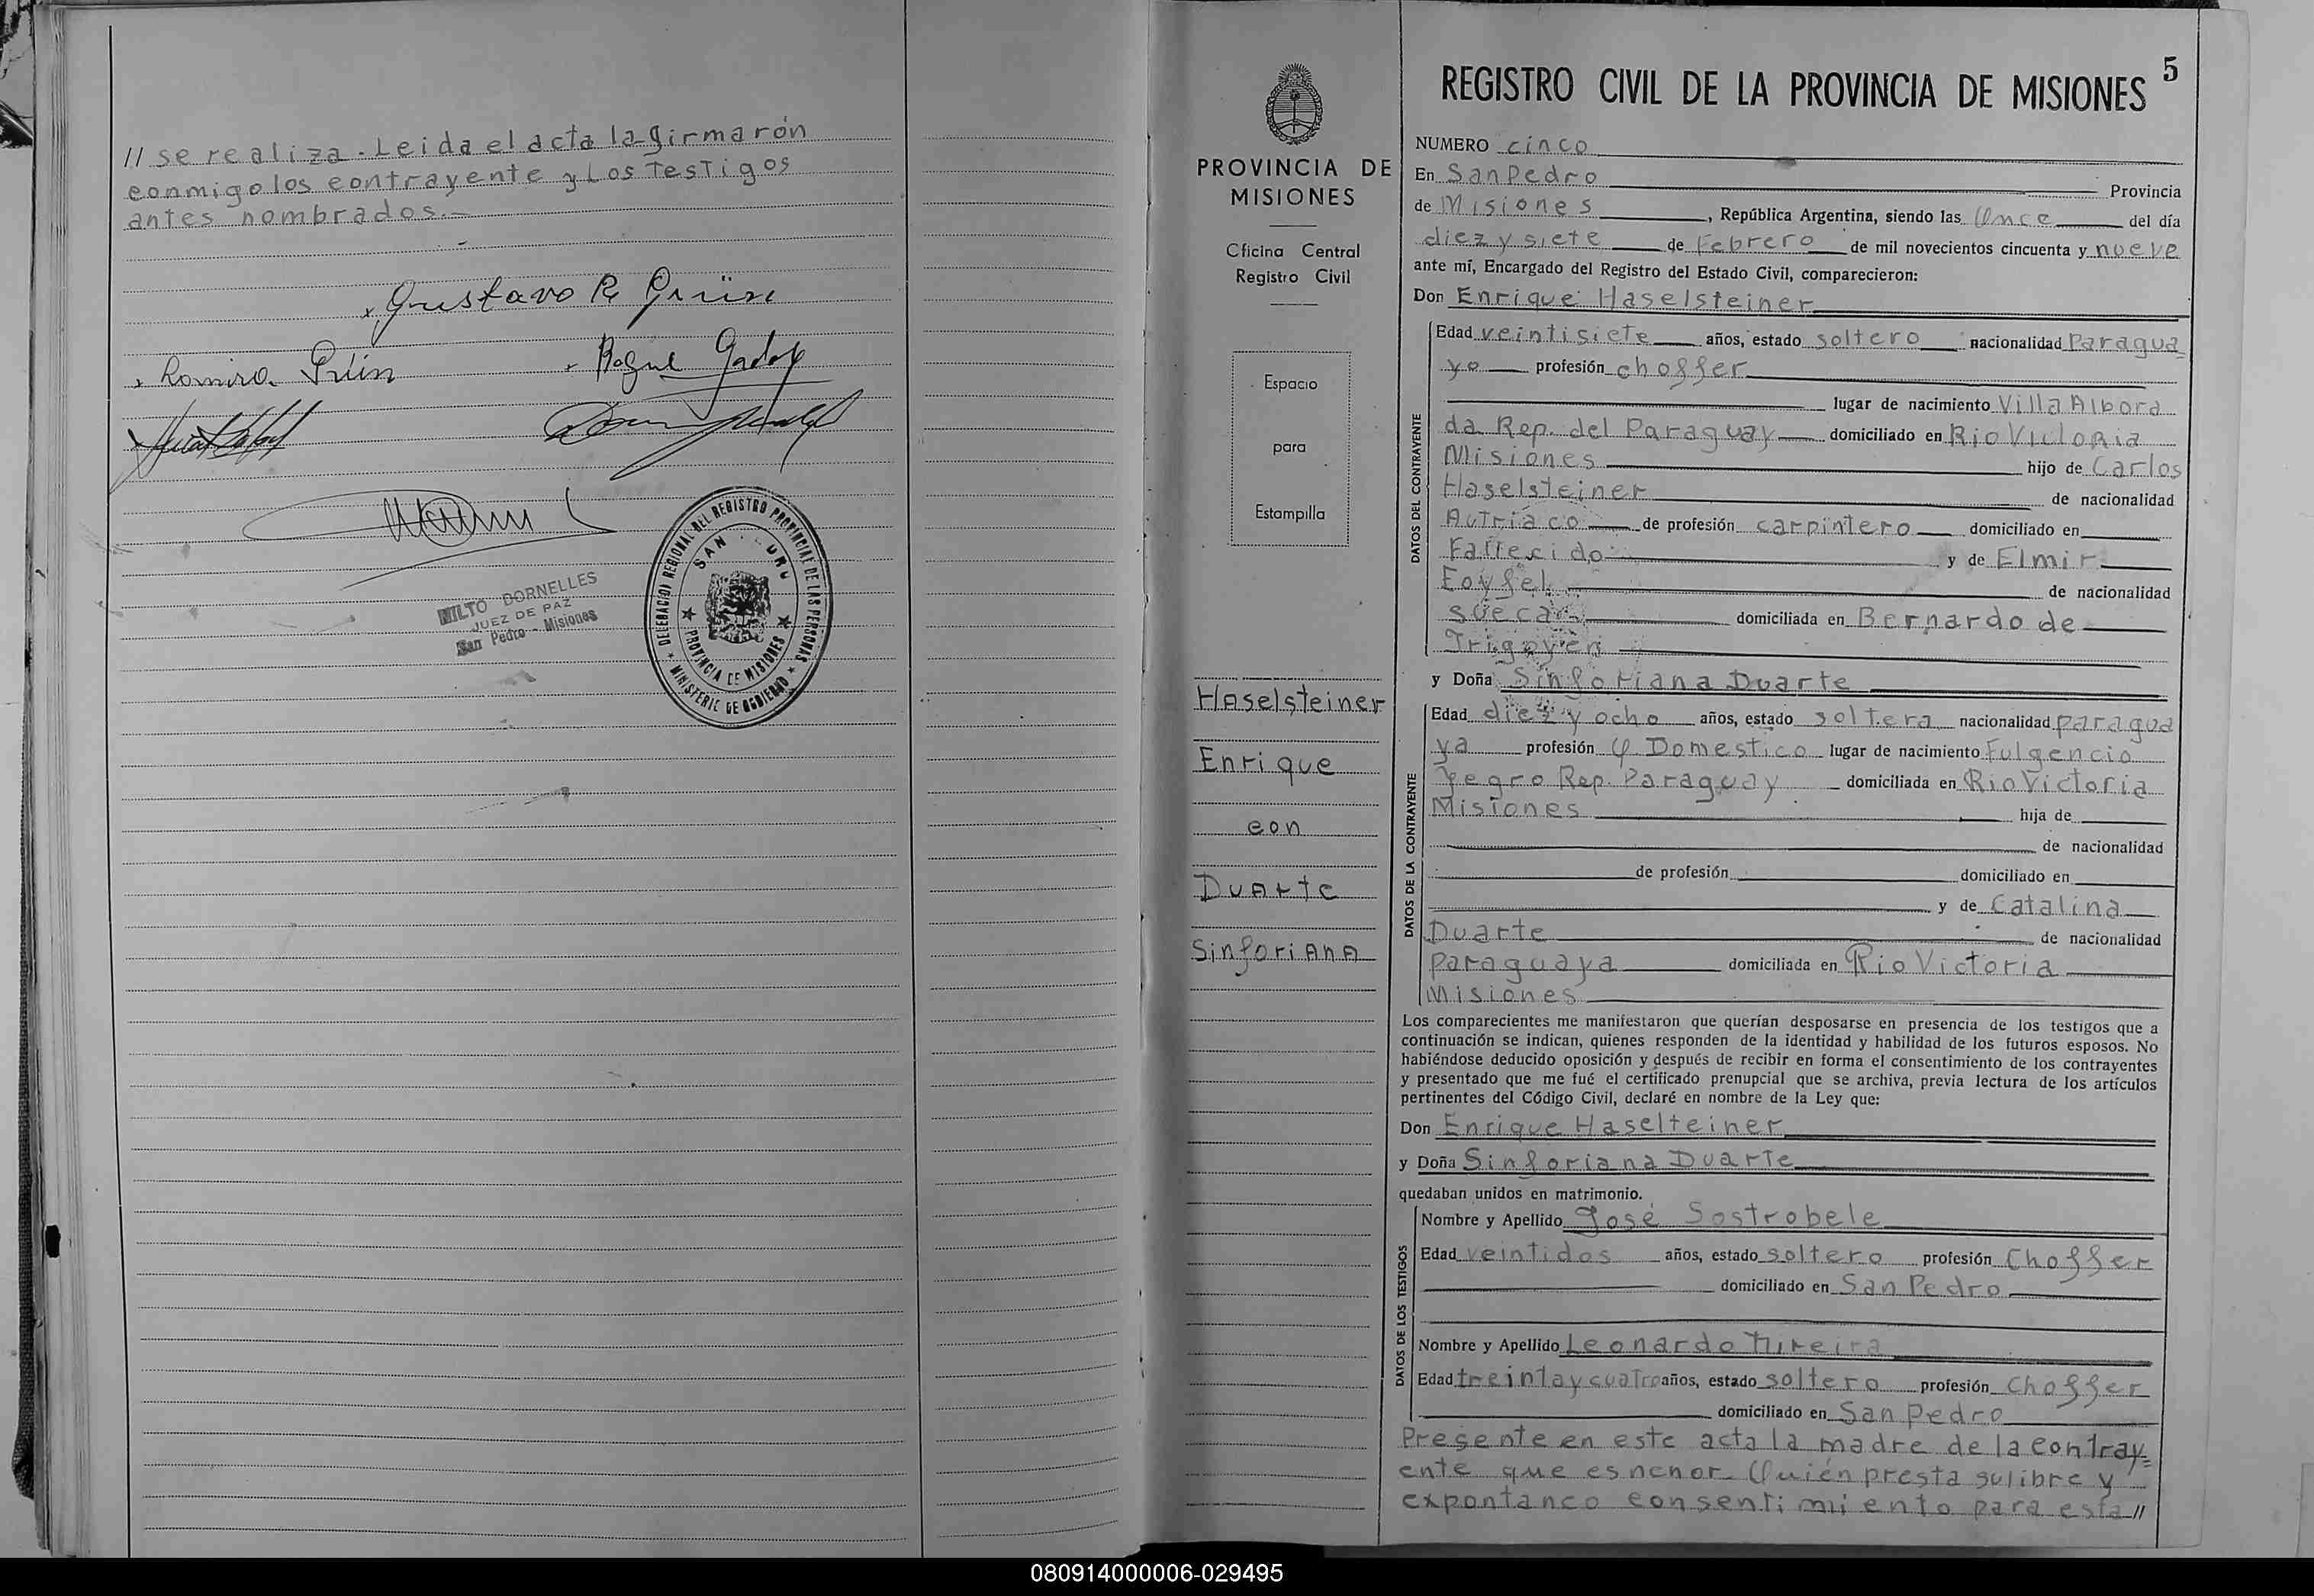 // se realiza. Leida el acta la firmarón
conmigo los contrayente y Los Testigos
antes nombrados.-
Gustavo R Grüne
Romira
Roque Godoy
MILTO DORNELLES
JUEZ DE PAZ
San Pedro - Misiones
DELEGACIOI REGIONAL DEL REGISTRO PROVINCIAL DE LAS PERSONAS
MINISTERIC DE GOBIERNO
SAN DRO
PROVINCIA DE MISIONES
PROVINCIA DE
MISIONES
Oficina Central
Registro Civil
Espacio
para
Estampilla
Haselsteiner
Enrique
con
Duarte
Sinforiana
REGISTRO CIVIL DE LA PROVINCIA DE MISIONES 5
NUMERO cinco
En San Pedro Provincia
de Misiones, República Argentina, siendo las Once del día
diez y siete de Febrero de mil novecientos cincuenta y nueve
ante mí, Encargado del Registro del Estado Civil, comparecieron:
Don Enrique Haselsteiner
DATOS DEL CONTRAYENTE
Edad veintisiete años, estado soltero nacionalidad Paragua
yo profesión choffer
lugar de nacimiento Villa Albora
da Rep. del Paraguay domiciliado en Rio Victoria
Misiones hijo de Carlos
Haselsteiner de nacionalidad
Autriaco de profesión carpintero domiciliado en
Fallecido y de Elmir
Eoyfel de nacionalidad
sueca domiciliada en Bernardo de
Irigoyen
y Doña Sinforiana Duarte
DATOS DE LA CONTRAYENTE
Edad diez y ocho años, estado soltera nacionalidad paragua
ya profesión Q Domestico lugar de nacimiento Fulgencio
Yegro Rep. Paraguay domiciliada en Rio Victoria
Misiones hija de
de nacionalidad
de profesión domiciliado en
y de Catalina
Duarte de nacionalidad
Paraguaya domiciliada en Rio Victoria
Misiones
Los comparecientes me manifestaron que querían desposarse en presencia de los testigos que a
continuación se indican, quienes responden de la identidad y habilidad de los futuros esposos. No
habiéndose deducido oposición y después de recibir en forma el consentimiento de los contrayentes
y presentado que me fué el certificado prenupcial que se archiva, previa lectura de los artículos
pertinentes del Código Civil, declaré en nombre de la Ley que:
Don Enrique Haselteiner
y Doña Sinforiana Duarte
quedaban unidos en matrimonio.
DATOS DE LOS TESTIGOS
Nombre y Apellido José Sostrobele
Edad veintidos años, estado soltero profesión Choffer
domiciliado en San Pedro
Nombre y Apellido Leonardo
Edad treinta y cuatro años, estado soltero profesión choffer
domiciliado en San Pedro
Presente en este acta la madre de la contray=
ente que es nenor. Quién presta su libre y
expontaneo consentimiento para esta //
080914000006-029495